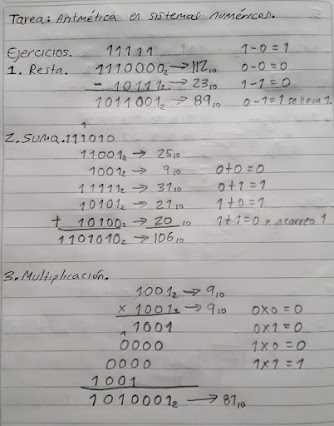 Tarea: Aritmética en sistemas numéricos.
Ejercicios. 11111 1-0=1
1. Resta. 1110000₂ → 112₁₀ 0-0=0
- 10111₂ → 23₁₀ 1-1=0
1011001₂ → 89₁₀ 0-1=1 se lleva 1
2. Suma. 111010
11001₂ → 25₁₀
1001₂ → 9₁₀ 0+0=0
11111₂ → 31₁₀ 0+1=1
10101₂ → 21₁₀ 1+0=1
+ 10100₂ → 20₁₀ 1+1=0 y acarreo 1
1101010₂ → 106₁₀
3. Multiplicación.
1001₂ → 9₁₀
x 1001₂ → 9₁₀ 0x0=0
1001 0x1=0
0000 1x0=0
0000 1x1=1
1001
1010001₂ → 81₁₀